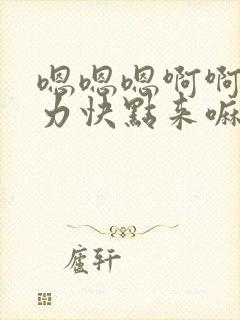 嗯嗯嗯啊啊
力快點來嘛
廬轩